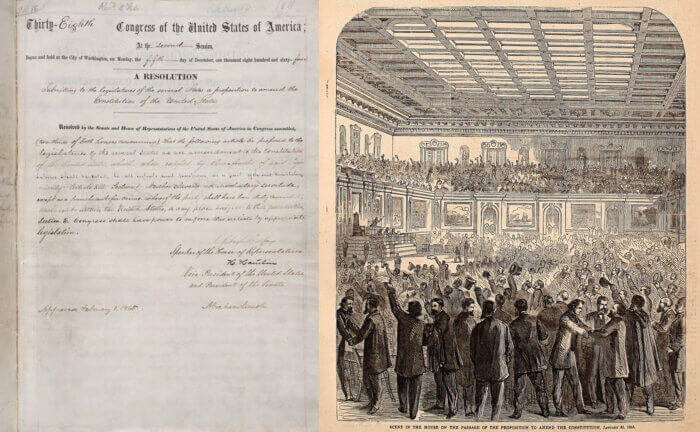 Thirty-Eighth Congress of the United States of America;
At the second Session,
Begun and held at the City of Washington, on Monday, the fifth day of December, one thousand eight hundred and sixty-four
A RESOLUTION
Submitting to the legislatures of the several States a proposition to amend the
Constitution of the United States
Resolved by the Senate and House of Representatives of the United States of America in Congress assembled,
(two thirds of both houses concurring) That the following article be proposed to the
legislatures of the several states as an amendment to the Constitution
of the United States, which, when ratified by three fourths of said
Legislatures shall be valid, to all intents and purposes, as a part of the said Constitution
namely: Article XIII. Section 1. Neither slavery nor involuntary servitude,
except as a punishment for crime whereof the party shall have been duly convicted,
shall exist within the United States, or any place subject to their jurisdiction.
Section 2. Congress shall have power to enforce this article by appropriate
legislation.
Speaker of the House of Representatives
H. Hamlin
Vice President of the United States
and President of the Senate
Approved February 1, 1865.
Abraham Lincoln
SCENE IN THE HOUSE ON THE PASSAGE OF THE PROPOSITION TO AMEND THE CONSTITUTION, JANUARY 31, 1865.